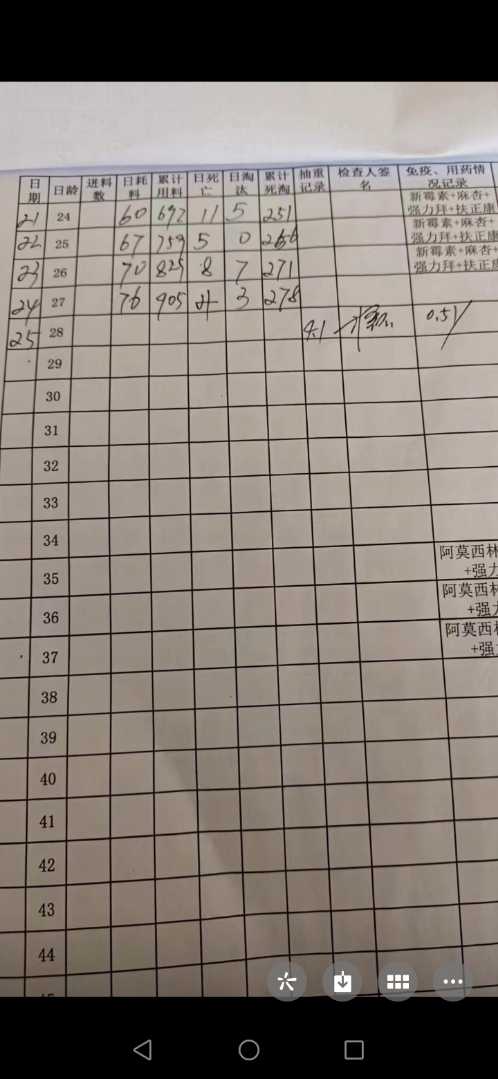 日期 日龄 进料数 日耗料 累计用料 日死亡 日淘汰 累计死淘 抽重记录 检查人签名 免疫、用药情况记录
21 24 60 692 11 5 251 新霉素+麻杏+强力拜+扶正康
22 25 67 759 5 0 266 新霉素+麻杏+强力拜+扶正
23 26 70 825 8 7 271 新霉素+麻杏+强力拜+扶正
24 27 76 905 4 3 278
25 28 4.1 0.51
29
30
31
32
33
34
35 阿莫西林+强力
36 阿莫西林+强
37 阿莫西+强
38
39
40
41
42
43
44